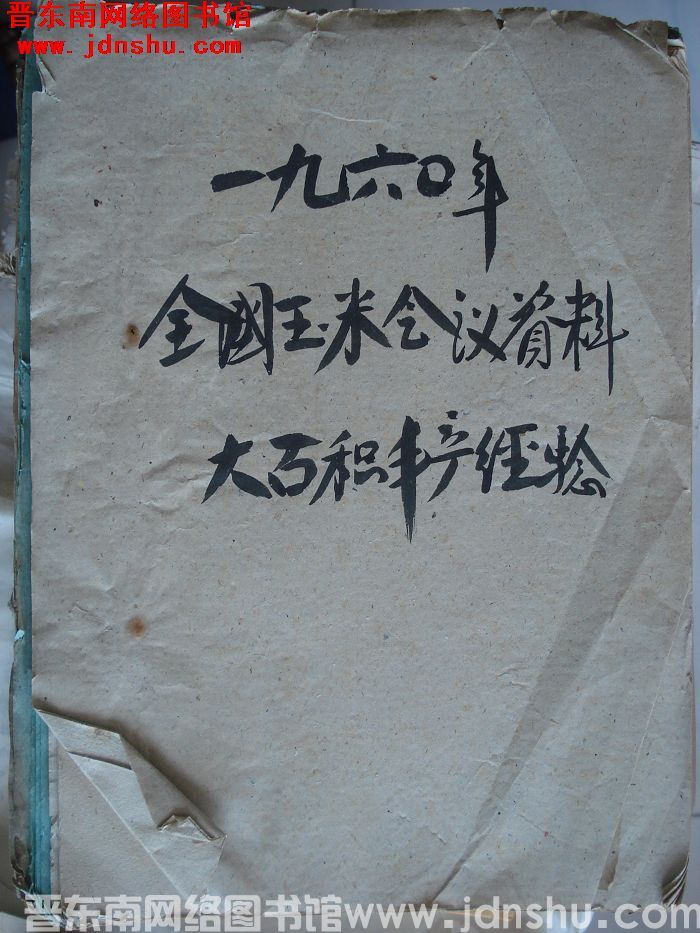 晋东南网络图书馆
www.jdnshu.com
一九六〇年
全國玉米会议資料
大百积丰产经验
晋东南网络图书馆 www.jdnshu.com